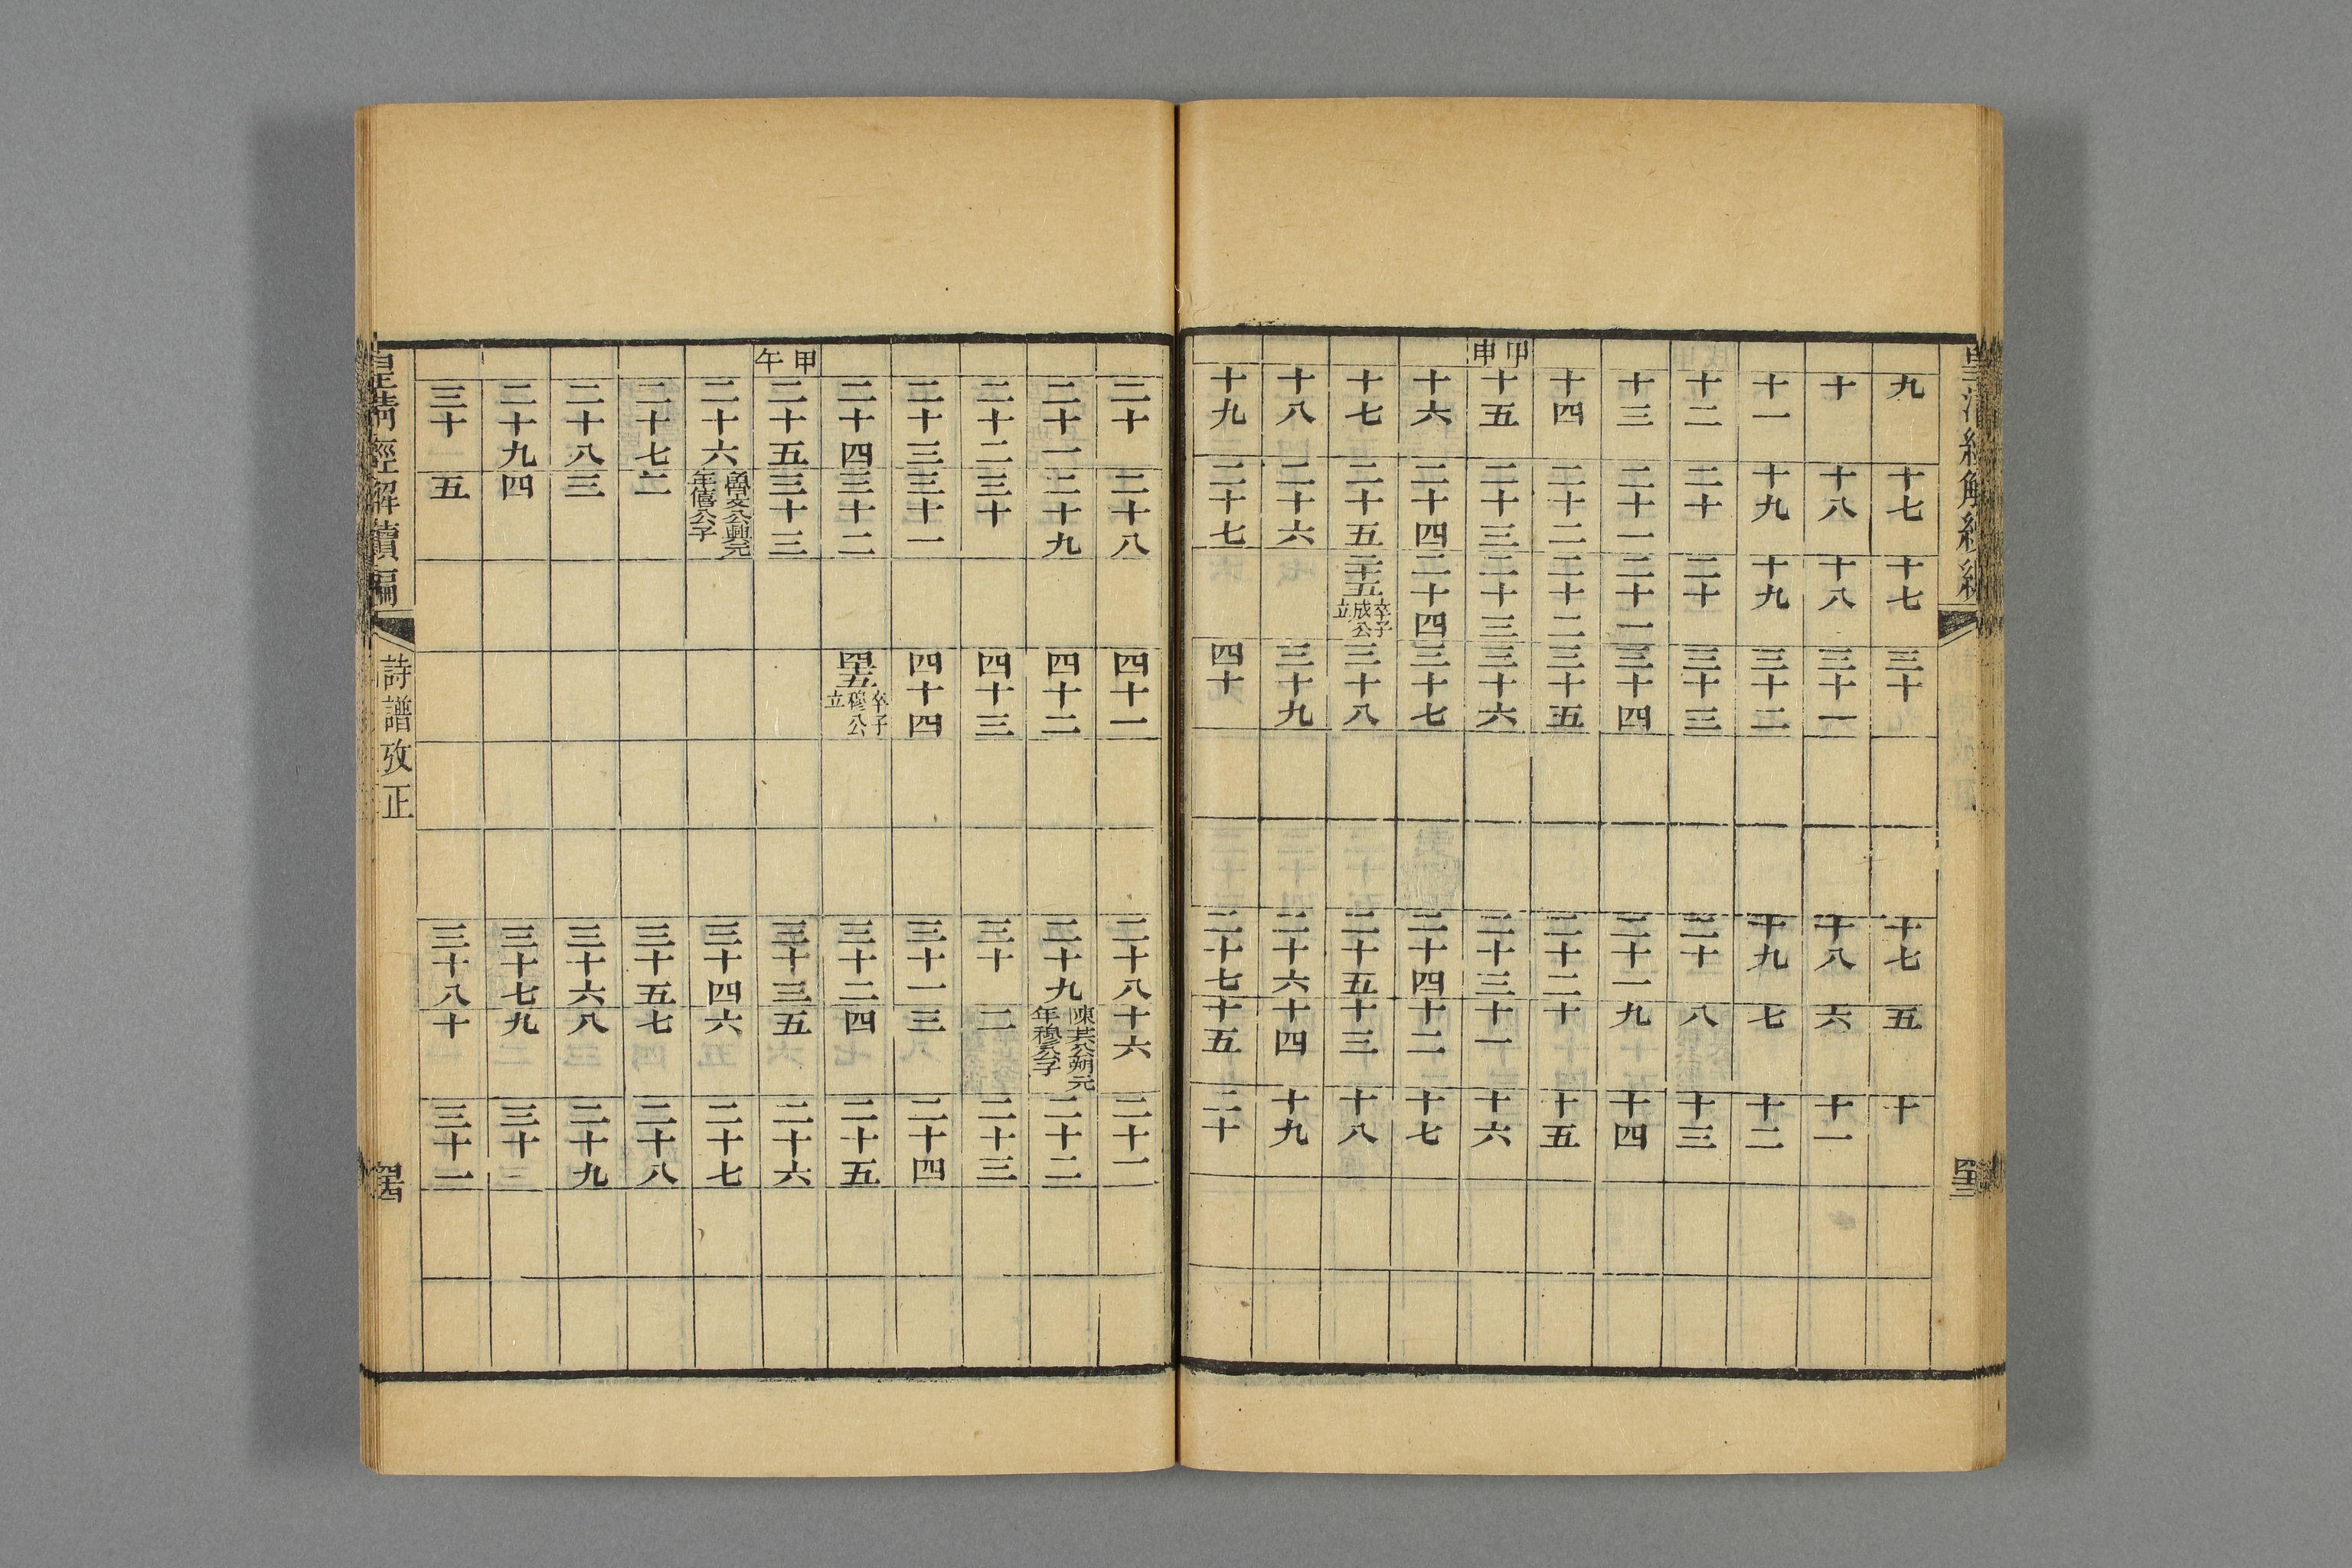 皇清經解續編 四十三
九 十七 十七 三十 十七 五 十
十 十八 十八 三十一 十八 六 十一
十一 十九 十九 三十二 十九 七 十二
十二 二十 二十 三十三 二十 八 十三
十三 二十一 二十一 三十四 二十一 九 十四
十四 二十二 二十二 三十五 二十二 十 十五
甲申 十五 二十三 二十三 三十六 二十三 十一 十六
十六 二十四 二十四 三十七 二十四 十二 十七
十七 二十五 二十五卒子成公立 三十八 二十五 十三 十八
十八 二十六 三十九 二十六 十四 十九
十九 二十七 四十 二十七 十五 二十
二十 二十八 四十一 二十八 十六 二十一
二十一 二十九 四十二 二十九 陳共公朔元年穆公子 二十二
二十二 三十 四十三 三十 二 二十三
二十三 三十一 四十四 三十一 三 二十四
二十四 三十二 四十五卒子穆公立 三十二 四 二十五
甲午 二十五 三十三 三十三 五 二十六
二十六 魯文公興元年僖公子 三十四 六 二十七
二十七 二 三十五 七 二十八
二十八 三 三十六 八 二十九
二十九 四 三十七 九 三十
三十 五 三十八 十 三十一
皇清經解續編 詩譜攷正 四十四